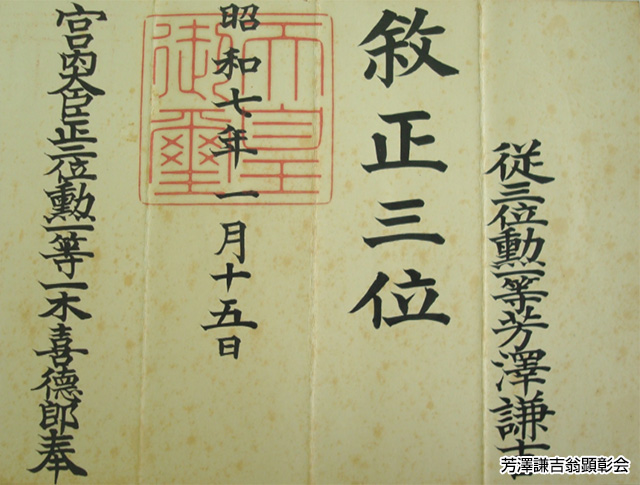 従三位勲一等芳澤謙吉
敘正三位
天皇御璽
昭和七年一月十五日
宮内大臣正三位勲一等一木喜德郎奉
芳澤謙吉翁顕彰会